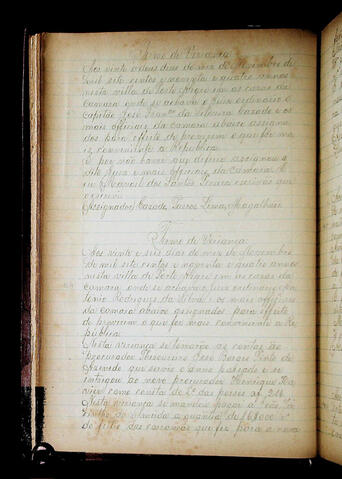 Termo de Viriança
Aos vinte e dous dias do mez de Novembro de
mil sete centos e noventa e quatro annos
nesta villa de Porto Alegre em as casas da
Camara onde se achavão o Juiz ordinario o
Capitão José Franco da Silveira Cazado e os
mais officiaes da camara abaixo assigna
dos para effeito de proverem o que fôr ma
is conveniente a Republica.
E por não haver que deferir assignou o
dito Juiz e mais officiaes da Camara. E
eu Manoel dos Santos escrivão que
o escrevi.
(Assignados) Cazado, Lima, Magalhães
Termo de Viriança.
Aos vinte e seis dias do mez de Novembro
de mil sete centos e noventa e quatro annos
nesta villa de Porto Alegre em as casas da
Camara, onde se achavão o Juiz ordinario An
tonio Rodrigues da Silva e os mais officiaes
da Camara abaixo assignados para effeito
de proverem o que fôr mais conveniente a Re
publica.
Nesta viriança se tomarão as contas ao
Procurador José Borges Pinto de
Azevedo que servio o anno passado e se
entregou ao novo procurador Henrique Xa
vier como consta do
Nesta viriança se mandou pagar a
de Almeida a quantia de
do feitio das que fez para a nova